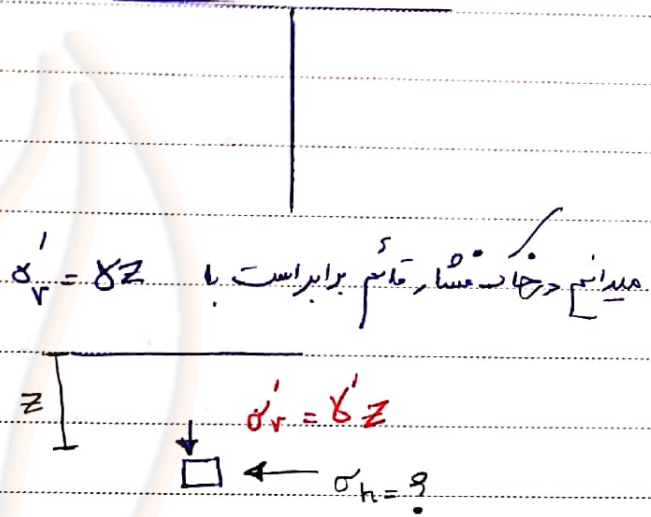 میدانیم در خاک فشار قائم برابر است با σ'v = γz
z
σ'v = γ'z
σh = ?